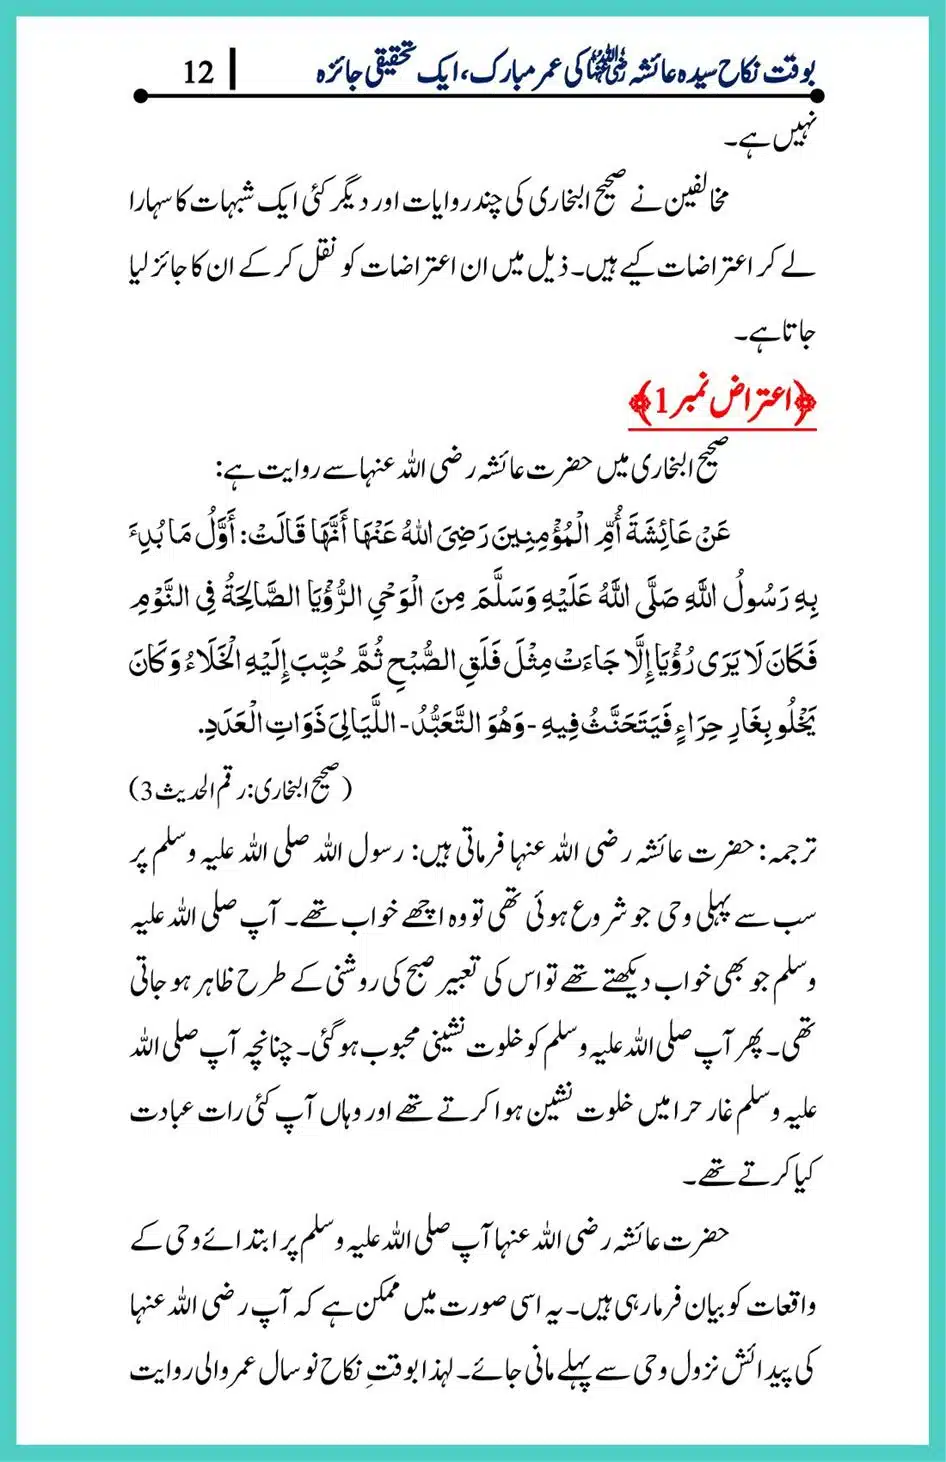 بوقت نکاح سیدہ عائشہ رضی اللہ عنہا کی عمر مبارک، ایک تحقیقی جائزہ | 12
نہیں ہے۔
مخالفین نے صحیح البخاری کی چند روایات اور دیگر کئی ایک شبہات کا سہارا
لے کر اعتراضات کیے ہیں۔ ذیل میں ان اعتراضات کو نقل کر کے ان کا جائز لیا
جاتا ہے۔
﴿اعتراض نمبر 1﴾
صحیح البخاری میں حضرت عائشہ رضی اللہ عنہا سے روایت ہے:
عَنْ عَائِشَةَ أُمِّ الْمُؤْمِنِينَ رَضِيَ اللهُ عَنْهَا أَنَّهَا قَالَتْ: أَوَّلُ مَا بُدِءَ
بِهِ رَسُولُ اللَّهِ صَلَّى اللَّهُ عَلَيْهِ وَسَلَّمَ مِنَ الْوَحْيِ الرُّؤْيَا الصَّالِحَةُ فِي النَّوْمِ
فَكَانَ لَا يَرَى رُؤْيَا إِلَّا جَاءَتْ مِثْلَ فَلَقِ الصُّبْحِ ثُمَّ حُبِّبَ إِلَيْهِ الْخَلَاءُ وَكَانَ
يَخْلُو بِغَارِ حِرَاءٍ فَيَتَحَنَّثُ فِيهِ -وَهُوَ التَّعَبُّدُ- اللَّيَالِيَ ذَوَاتِ الْعَدَدِ.
(صحیح البخاری: رقم الحدیث 3)
ترجمہ: حضرت عائشہ رضی اللہ عنہا فرماتی ہیں: رسول اللہ صلی اللہ علیہ وسلم پر
سب سے پہلی وحی جو شروع ہوئی تھی تو وہ اچھے خواب تھے۔ آپ صلی اللہ علیہ
وسلم جو بھی خواب دیکھتے تھے تو اس کی تعبیر صبح کی روشنی کے طرح ظاہر ہو جاتی
تھی۔ پھر آپ صلی اللہ علیہ وسلم کو خلوت نشینی محبوب ہو گئی۔ چنانچہ آپ صلی اللہ
علیہ وسلم غار حرا میں خلوت نشین ہوا کرتے تھے اور وہاں آپ کئی رات عبادت
کیا کرتے تھے۔
حضرت عائشہ رضی اللہ عنہا آپ صلی اللہ علیہ وسلم پر ابتدائے وحی کے
واقعات کو بیان فرما رہی ہیں۔ یہ اسی صورت میں ممکن ہے کہ آپ رضی اللہ عنہا
کی پیدائش نزول وحی سے پہلے مانی جائے۔ لہذا بوقتِ نکاح نو سال عمر والی روایت